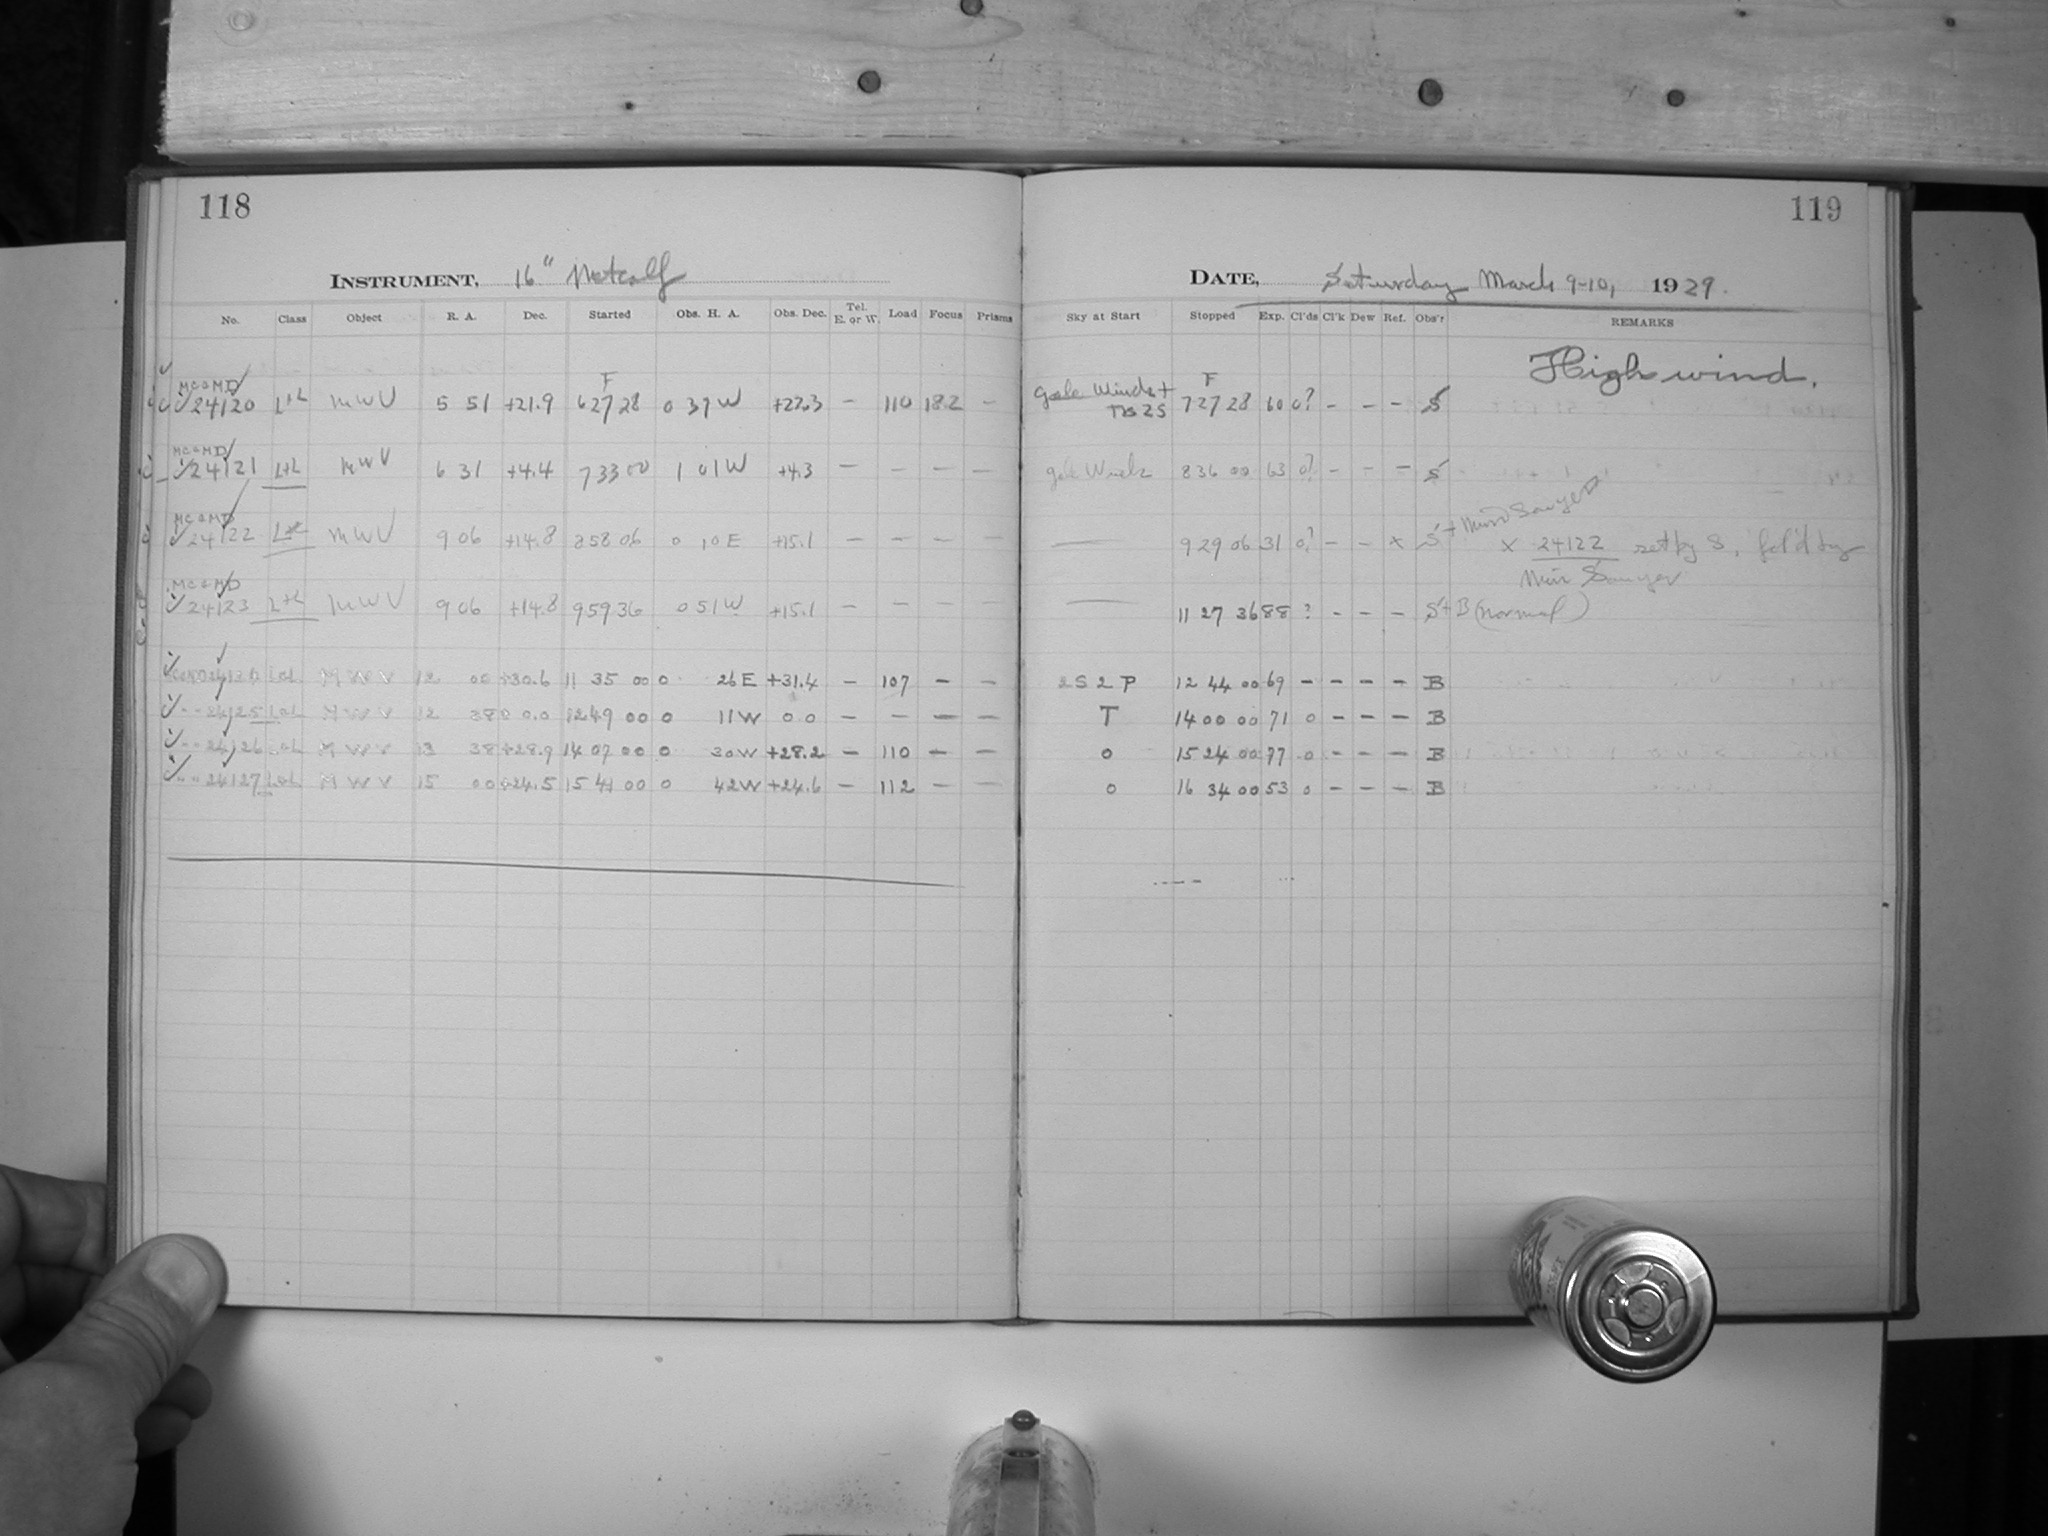 118
INSTRUMENT, 16" Metcalf
No. Class Object R. A. Dec. Started Obs. H. A. Obs. Dec. Tel. E. or W. Load Focus Prisms
MC & MD
24120 L+L MWV 5 51 +21.9 F 6 27 28 0 37 W +22.3 – 110 18.2 –
MC & MD
24121 L+L MWV 6 31 +4.4 7 33 00 1 01 W +4.3 – – – –
MC & MD
24122 MWV 9 06 +14.8 8 58 06 0 10 E +15.1 – – – –
MC & MD
24123 L+L MWV 9 06 +14.8 9 59 36 0 51 W +15.1 – – – –
MWV 12 00 +30.6 11 35 00 0 26 E +31.4 – 107 – –
24125 MWV 12 38 0.0 12 49 00 0 11 W 0 0 – – – –
24126 MWV 13 38 +28.9 14 07 00 0 30 W +28.2 – 110 – –
24127 MWV 15 00 +24.5 15 41 00 0 42 W +24.6 – 112 – –
119
DATE, Saturday March 9-10, 1929.
Sky at Start Stopped Exp. Cl'ds Cl'k Dew Ref. Obs'r REMARKS
High wind.
Gale Winds + F 7 27 28 60 0? – – – S
Gale Winds 8 36 00 63 0? – – – S
— 9 29 06 31 0? – – x S + Miss Sawyer
x 24122 set by S, fol'd by
Miss Sawyer
— 11 27 36 88 ? – – – S + B (normal)
2 S 2 P 12 44 00 69 – – – – B
T 14 00 00 71 0 – – – B
0 15 24 00 77 0 – – – B
0 16 34 00 53 0 – – – B